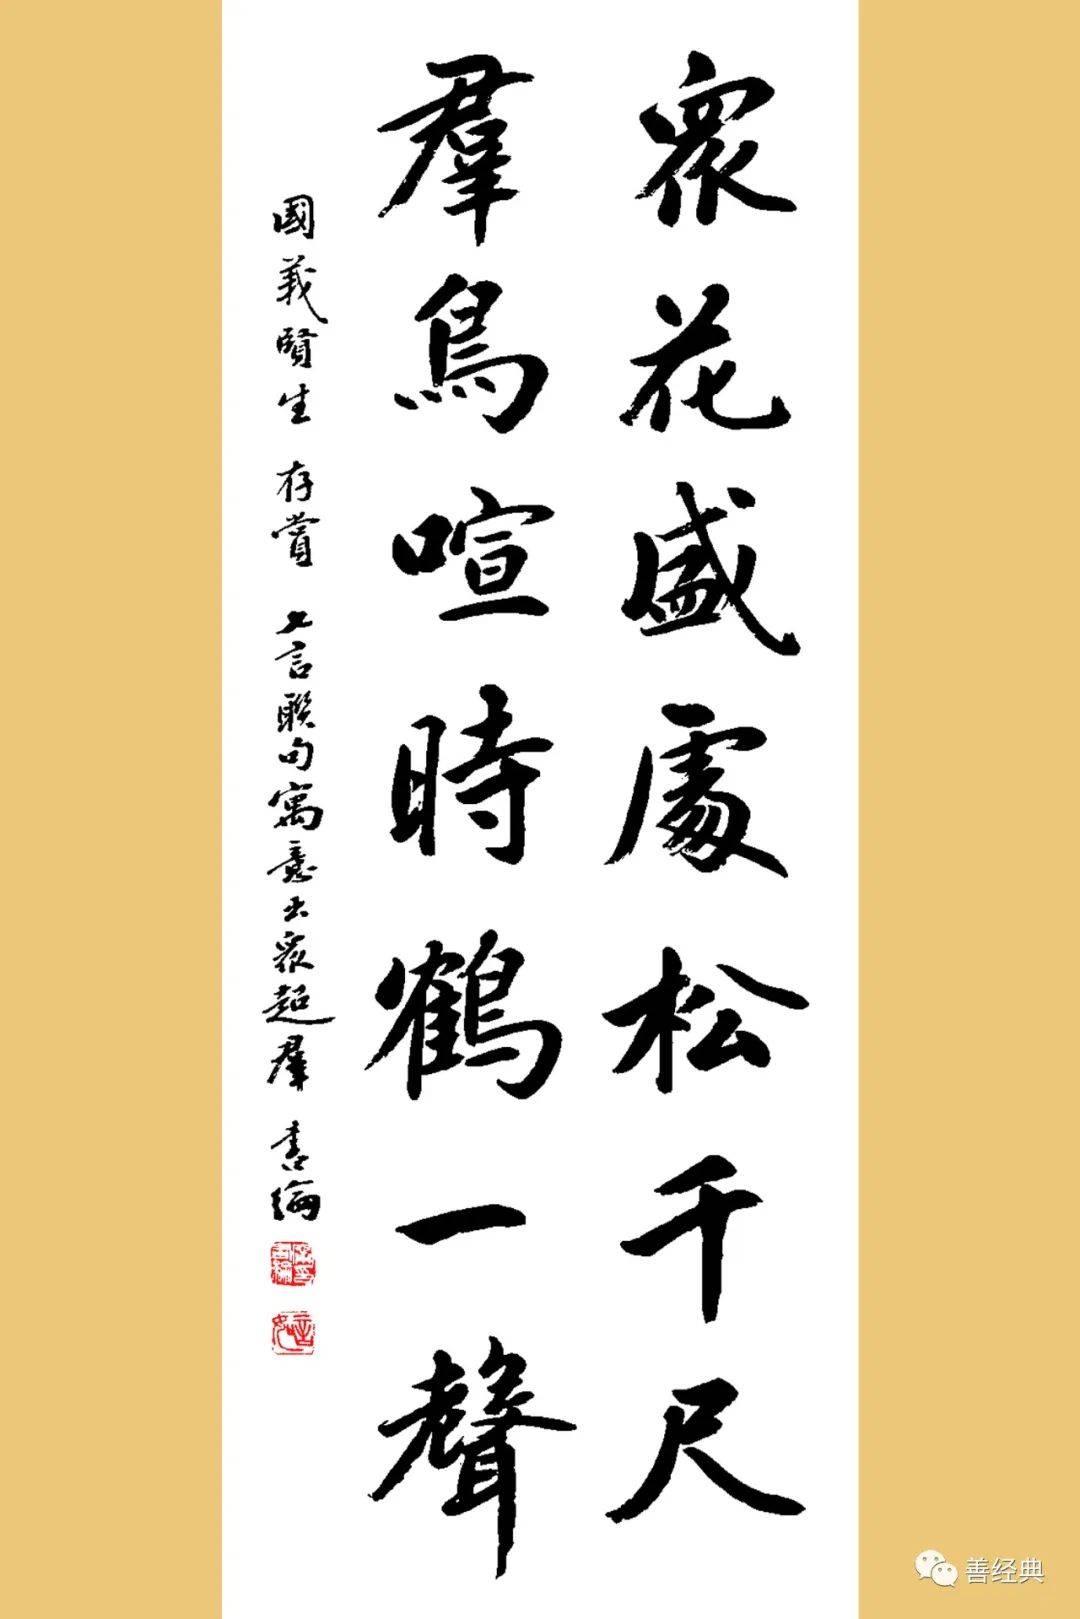 眾花盛處松千尺
羣鳥喧時鶴一聲
國義賢生 存賞 七言聯句寓意出眾超羣 書綸
善经典